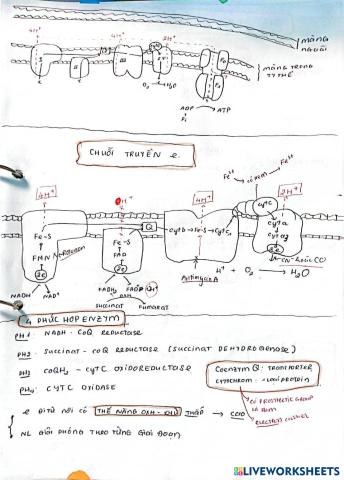 4H⁺
4H⁺
2H⁺
MÀNG NGOÀI
MÀNG TRONG TY THỂ
I
II
III
IV
Fo
O₂ → H₂O
F₁
ADP → ATP
Pi
CHUỖI TRUYỀN e.
Fe²⁺
Fe³⁺
4H⁺
H⁺
4H⁺
2H⁺
CytC
Fe-S
Fe-S
Q
Cytb → Fe-S → CytC₁
Cyta
Cyta3
FMN
FAD
2e
2e
2e
Antimycin A
CN⁻ hoặc CO
H⁺ + O₂ → H₂O
NADH
NAD⁺
FADH₂
FAD
2H⁺
Succinat
Fumarat
4 PHỨC HỢP ENZYM
PH1 NADH - CoQ REDUCTASE
PH2 SUCCINAT - COQ REDUCTASE (SUCCINAT DEHYDROGENASE)
PH3 COQH₂ - CYTC OXIDOREDUCTASE
PH4: CYTC OXIDASE
COENZYM Q: TRANSPORTER
CYTOCHROM: PROTEIN
CÓ PROSTHETIC GROUP LÀ HEM
ELECTRON CARRIER
e ĐI TỪ NƠI CÓ THẾ NĂNG OXH-KHỬ THẤP → CAO
NL GIẢI PHÓNG THEO TỪNG GIAI ĐOẠN
LIVEWORKSHEETS